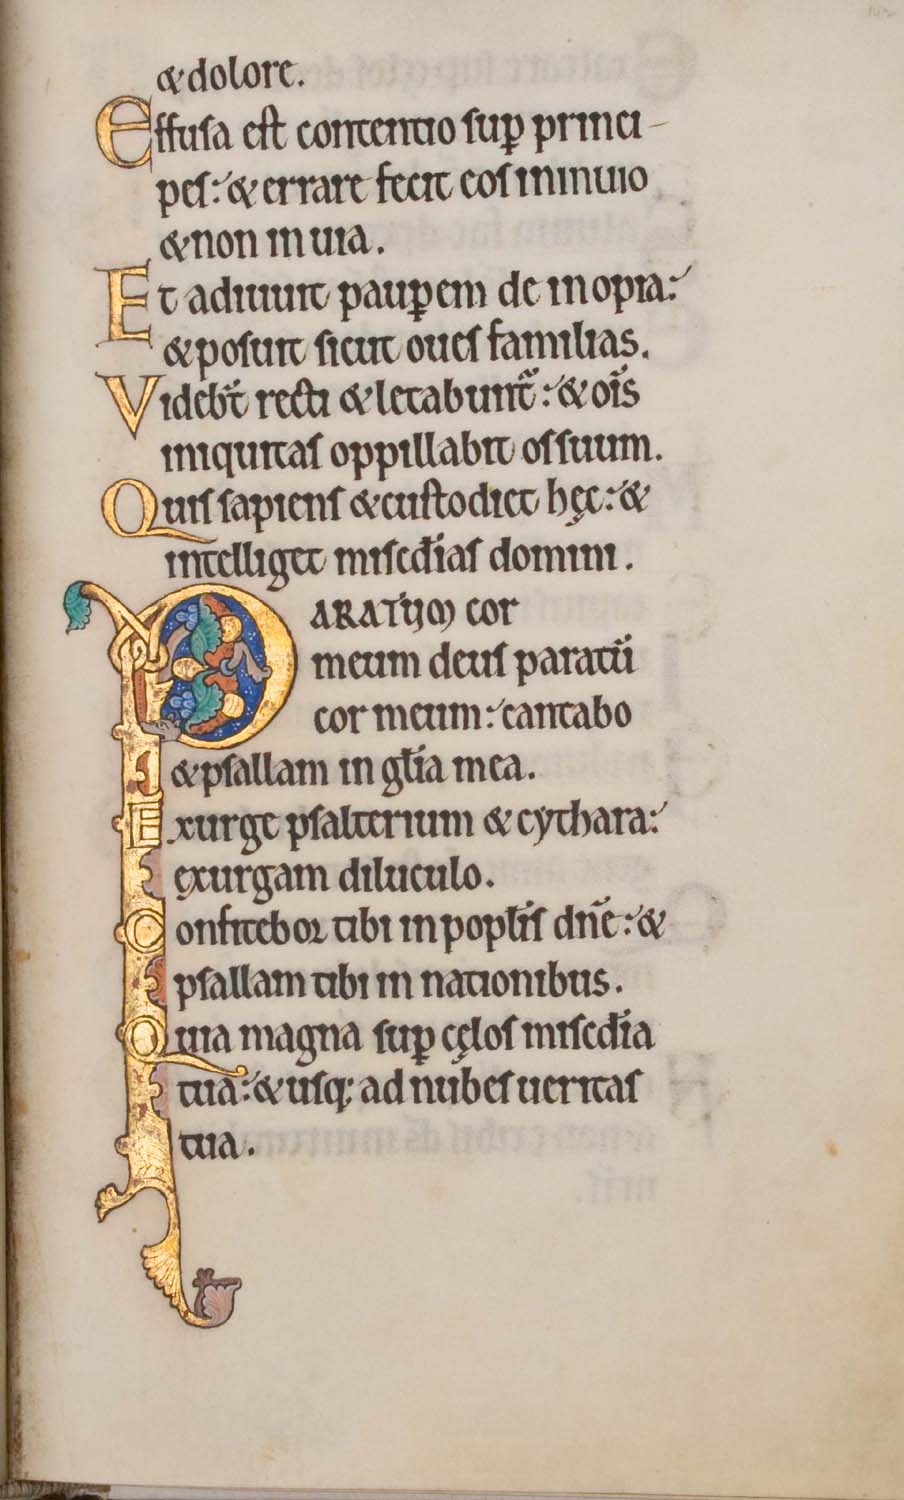 & dolore.
Effusa est contentio sup̲ princi-
pes: & errare fecit eos in inuio
& non in uia.
Et adiuuit paup̲em de inopia:
& posuit sicut oues familias.
Videbt̄ recti & letabunt̄: & oīs
iniquitas oppillabit os suum.
Quis sapiens & custodiet hęc: &
intelliget misedīas domini.
PARATUM cor
meum deus paratū
cor meum: cantabo
& psallam in gl̄ia mea.
Exurge psalterium & cythara:
exurgam diluculo.
Confitebor tibi in popl̄is dn̄e: &
psallam tibi in nationibus.
Quia magna sup̲ cęlos misedīa
tua: & usq; ad nubes ueritas
tua.